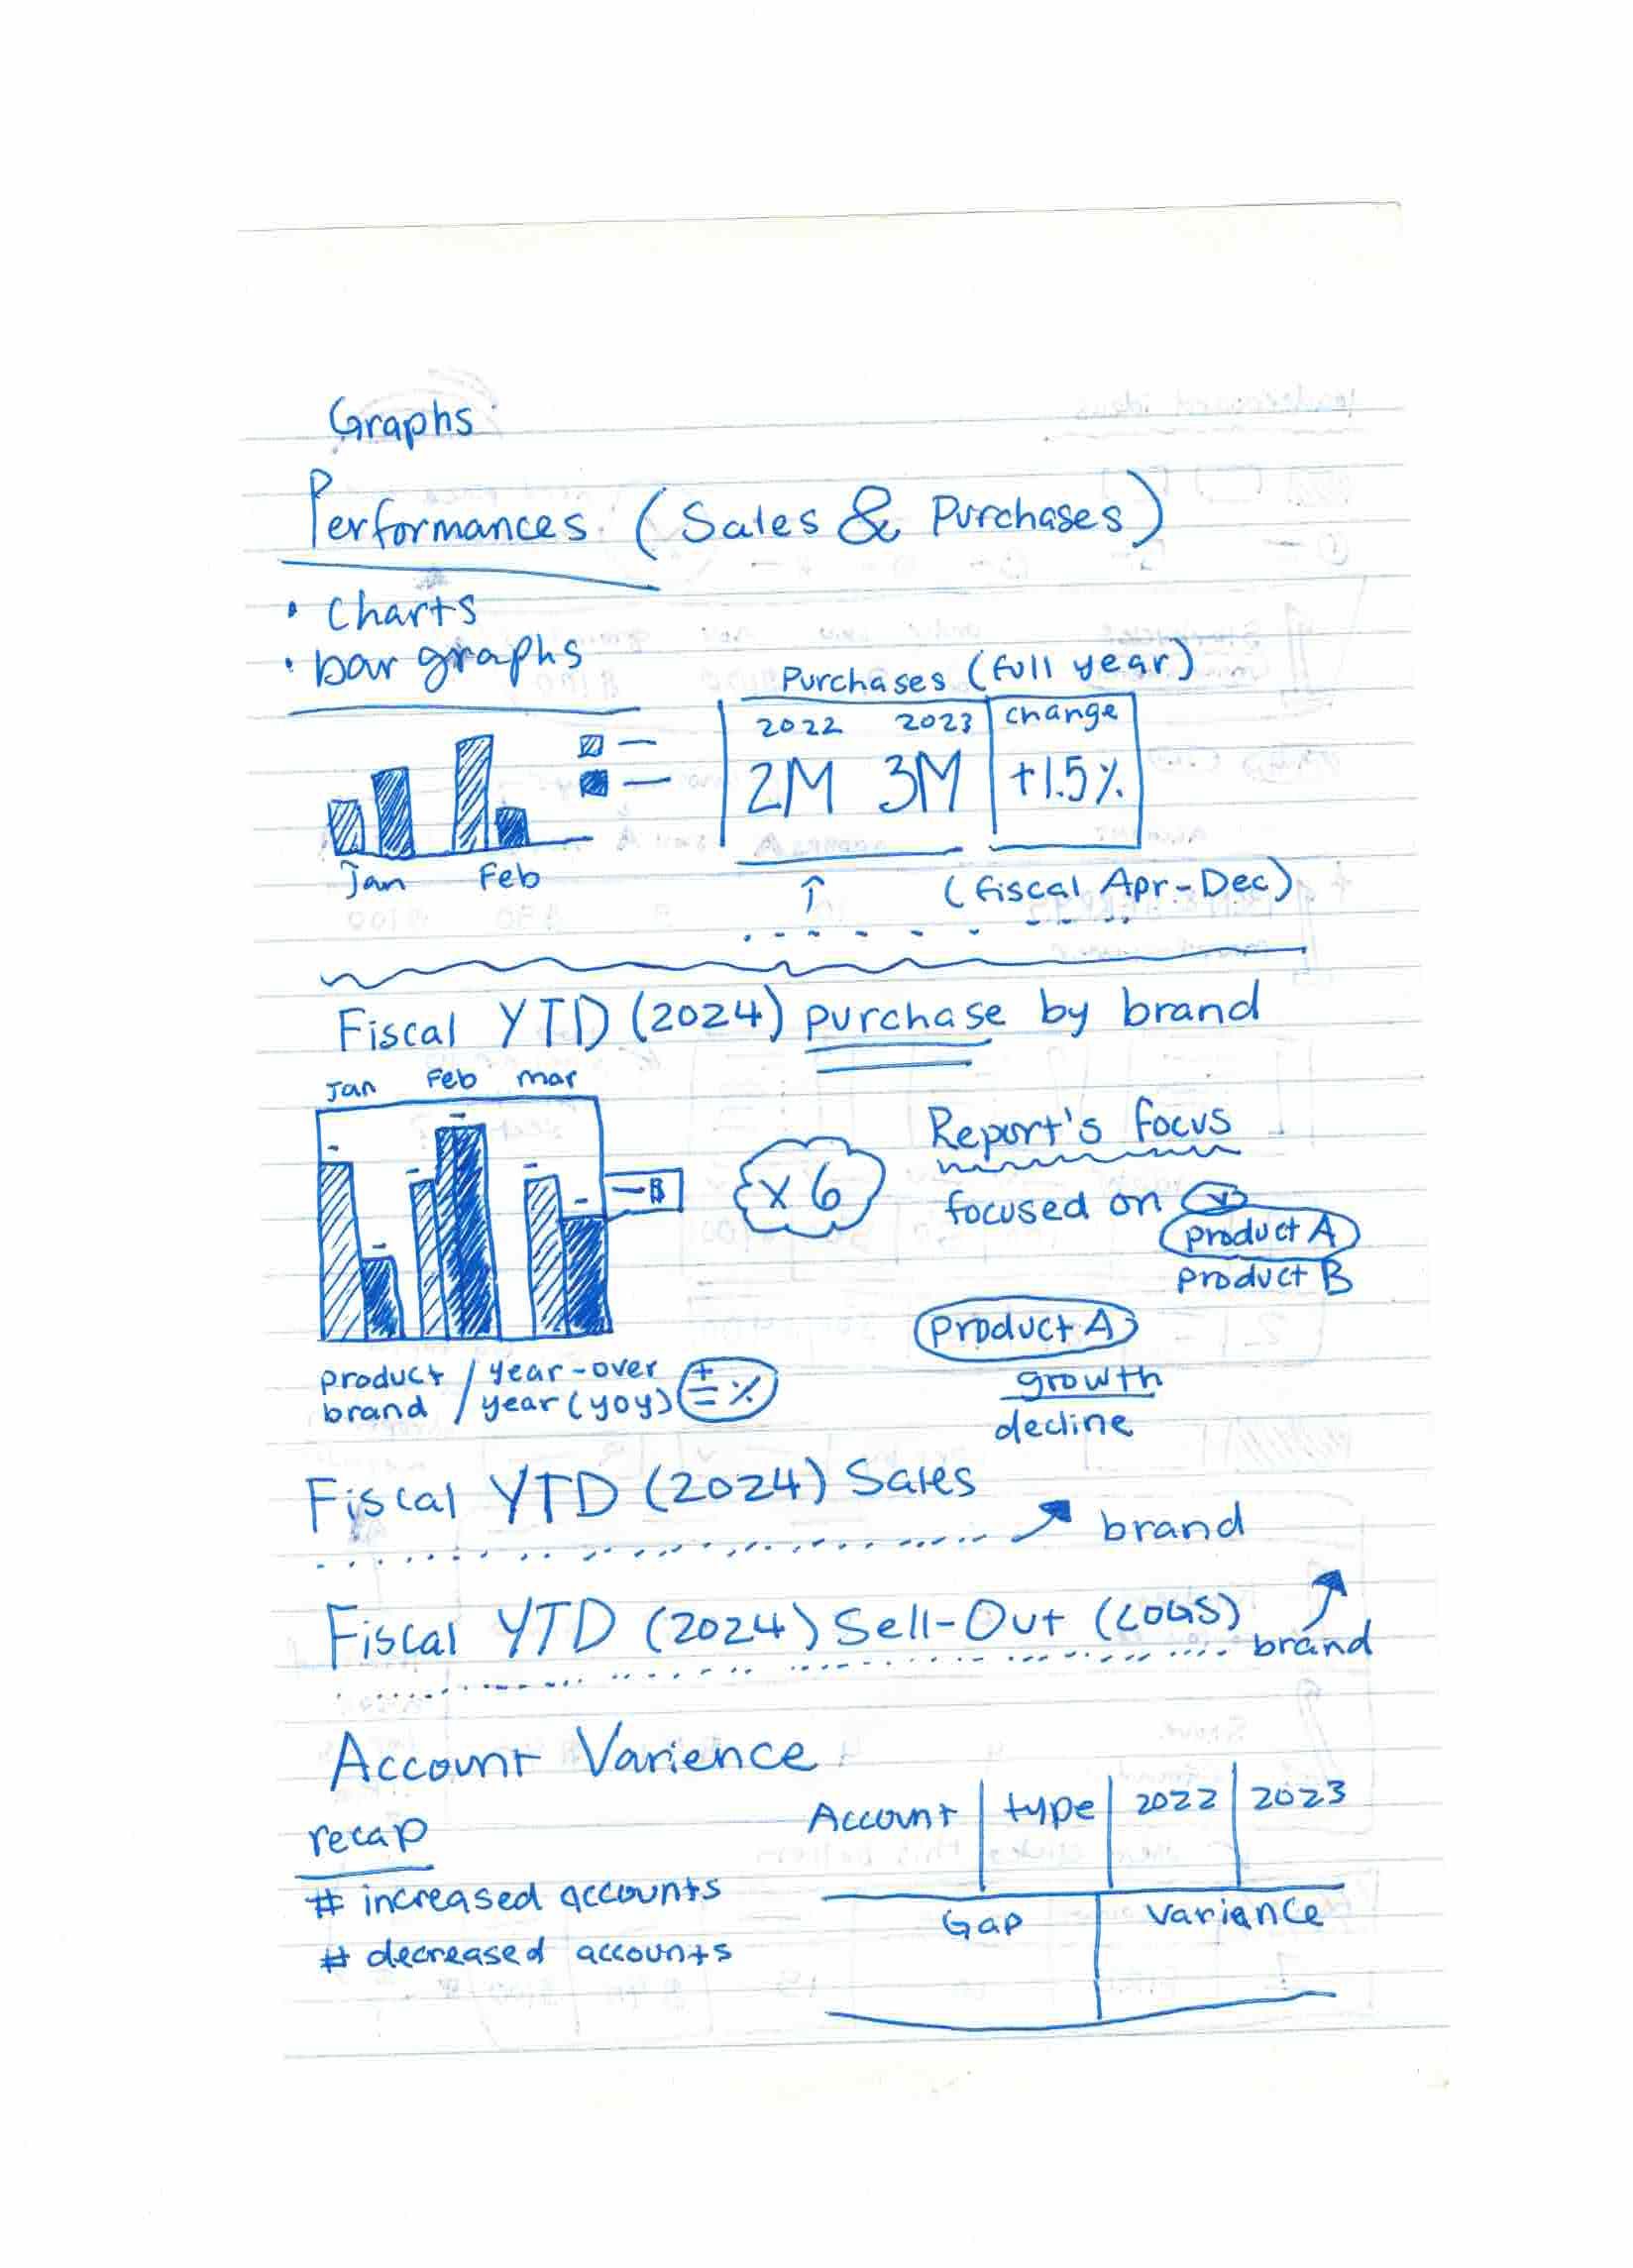 Graphs
Performances (Sales & Purchases)
• Charts
• bar graphs
Jan Feb
Purchases (full year)
2022 2023 change
2M 3M +1.5%
(fiscal Apr-Dec)
Fiscal YTD (2024) purchase by brand
Jan Feb mar
B
x 6
Report's focus
focused on
product A
product B
product A
growth
decline
product / year-over
brand / year (yoy) ± %
Fiscal YTD (2024) Sales
brand
Fiscal YTD (2024) Sell-Out (COGS)
brand
Account Varience
recap
# increased accounts
# decreased accounts
Account type 2022 2023
Gap variance